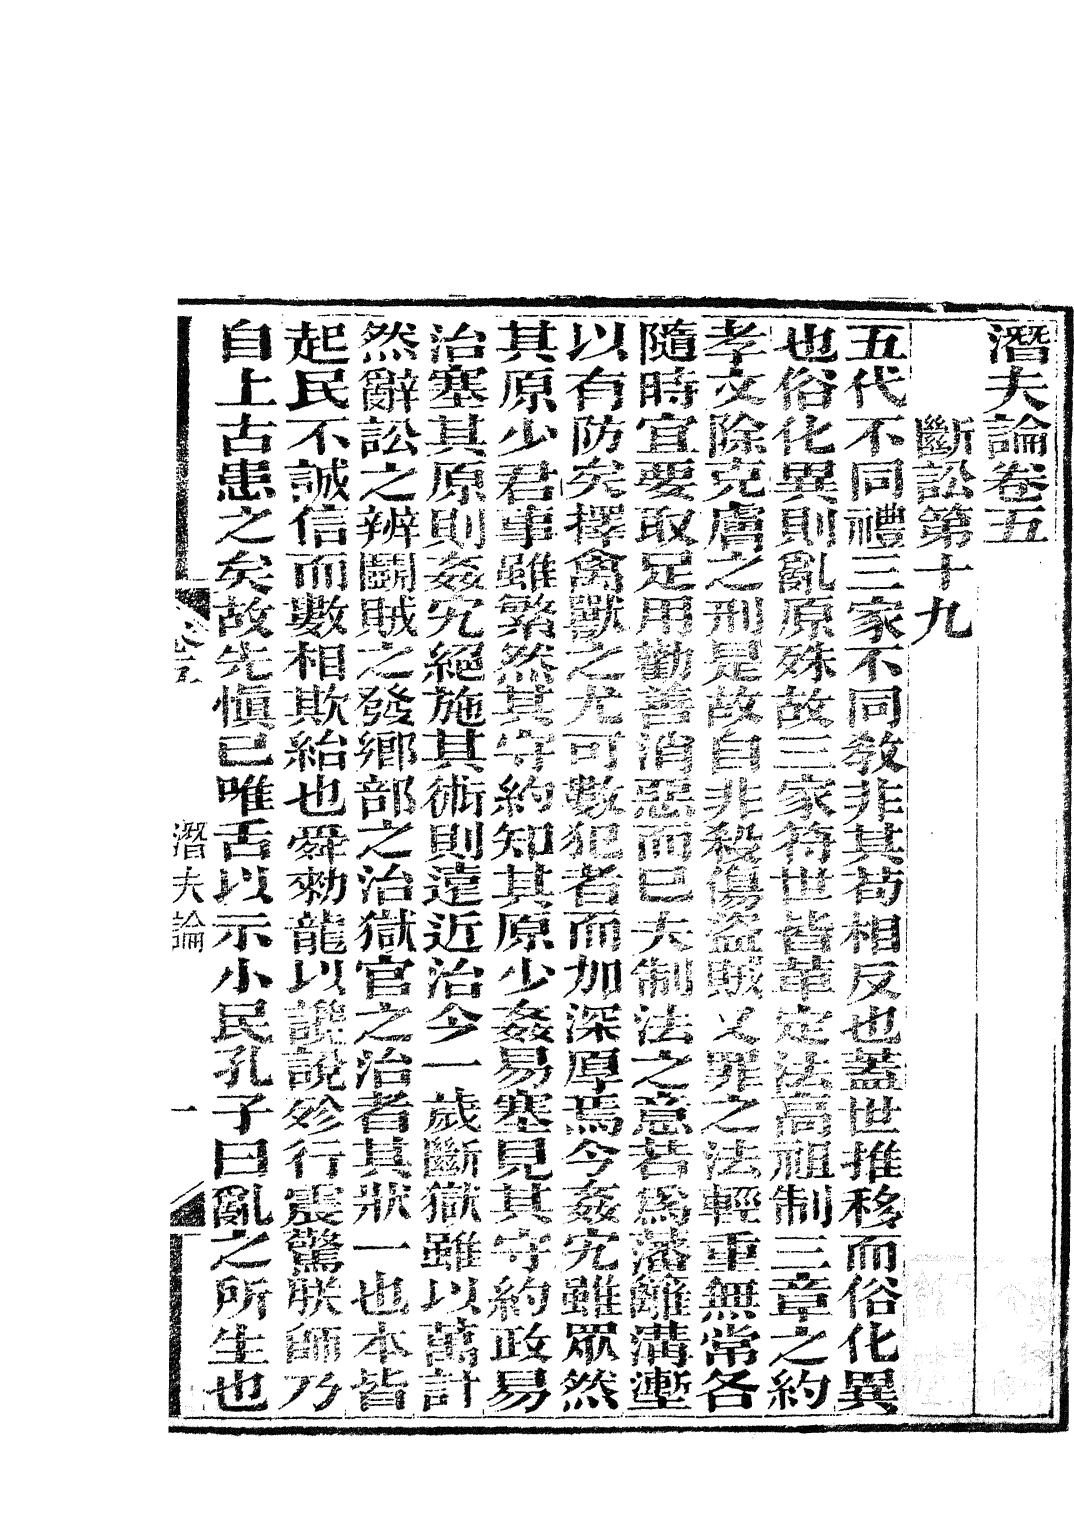 潛夫論卷五
斷訟第十九
五代不同禮三家不同教非其苟相反也蓋世推移而俗化異
也俗化異則亂原殊故三家符世皆革定法高祖制三章之約
孝文除克膚之刑是故自非殺傷盜賊文罪之法輕重無常各
隨時宜要取足用勸善消惡而已夫制法之意若為藩籬溝壍
以有防矣擇禽獸之尤可數犯者而加深厚焉今姦宄雖眾然
其原少君事雖繁然其守約知其原少姦易塞見其守約政易
治塞其原則姦宄絕施其術則遠近治今一歲斷獄雖以萬計
然辭訟之辨鬭賊之發鄉部之治獄官之治者其狀一也本皆
起民不誠信而數相欺紿也舜勑龍以讒說殄行震驚朕師乃
自上古患之矣故先慎己唯舌以示小民孔子曰亂之所生也
卷五
潛夫論
一